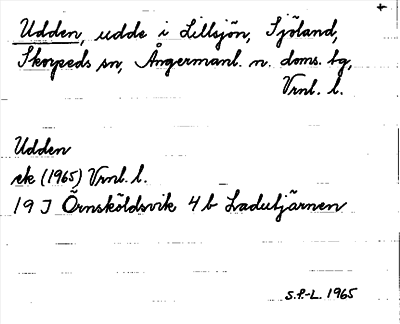 +
Udden, udde i Lillsjön, Sjöland,
Skorpeds sn, Ångermanl. n. doms. tg,
Vrnl. l.
Udden
ek (1965) Vrnl. l.
19 J Örnsköldsvik 4 b Ladutjärnen
S.P.-L. 1965